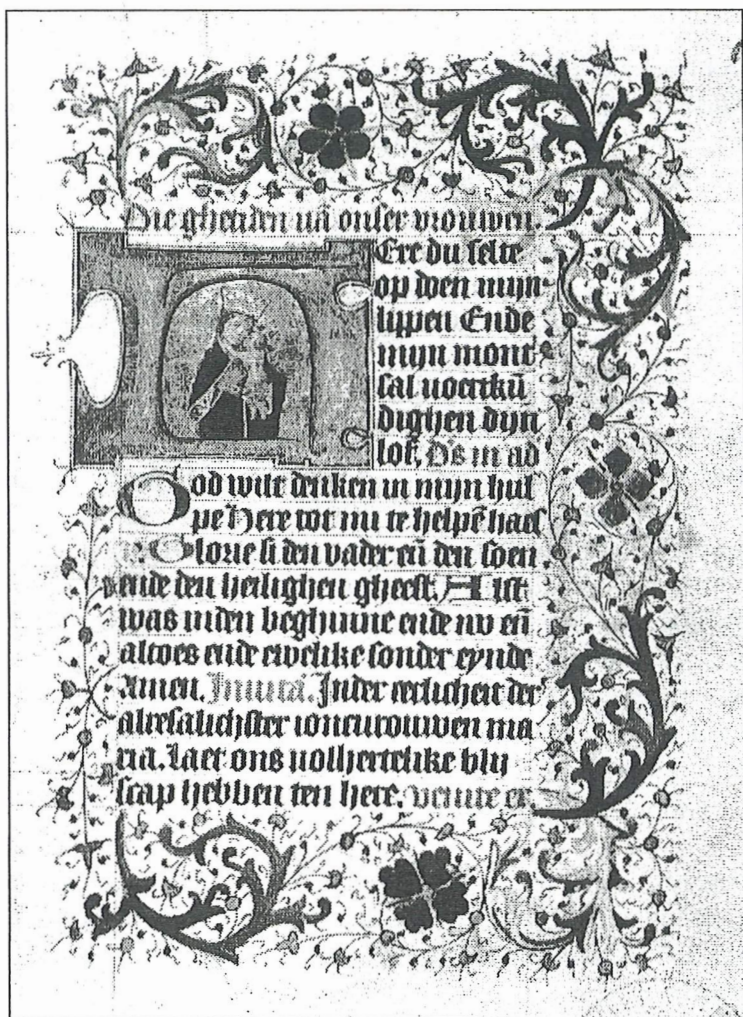 Die ghetiden vā onser vrouwen
Ere du selte
op doen mijn
lippen Ende
mijn mont
sal voertkū
dighen dijn
lof. Ds in ad
God wilt denken in mijn hul
pe Here tot mi te helpē haest
Glorie si den vader eñ den soen
ende den heilighen gheest. Als it
was inden beghinne ende nv eñ
altoes ende ewelike sonder eynde
Amen. Inder eerlicheit der
alresalichster ioncurouwen ma
ria. Laet ons volhertelike blij
scap hebben ten here. venite ex.